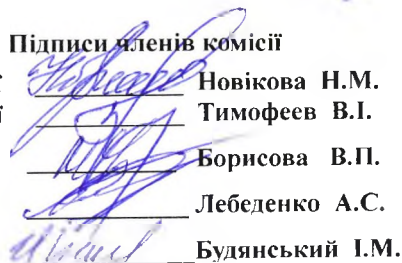 Підписи членів комісії
Новікова Н.М.
ї Тимофеев В.І.
Борисова В.П.
Лебеденко А.С.
Будянський І.М.